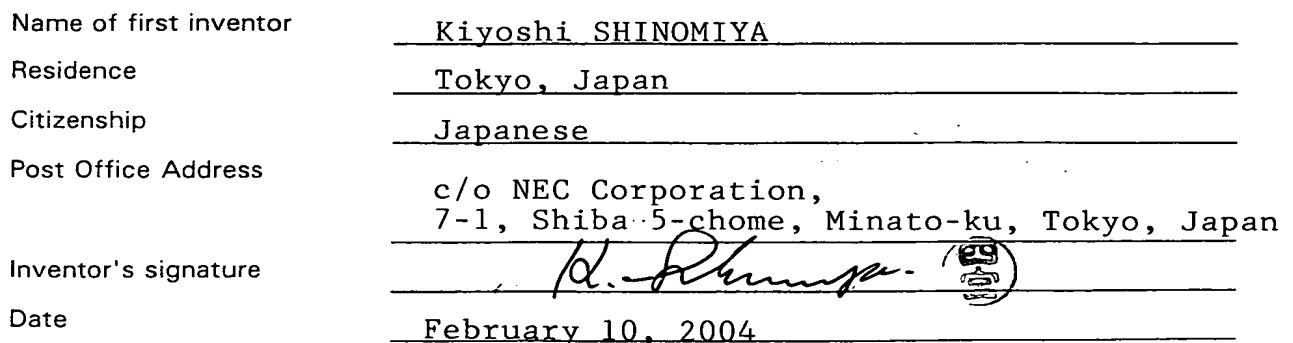 Name of first inventor Kiyoshi SHINOMIYA
Residence Tokyo, Japan
Citizenship Japanese
Post Office Address
c/o NEC Corporation,
7-1, Shiba 5-chome, Minato-ku, Tokyo, Japan
Inventor's signature K. Shinomiya 四宮
Date February 10, 2004